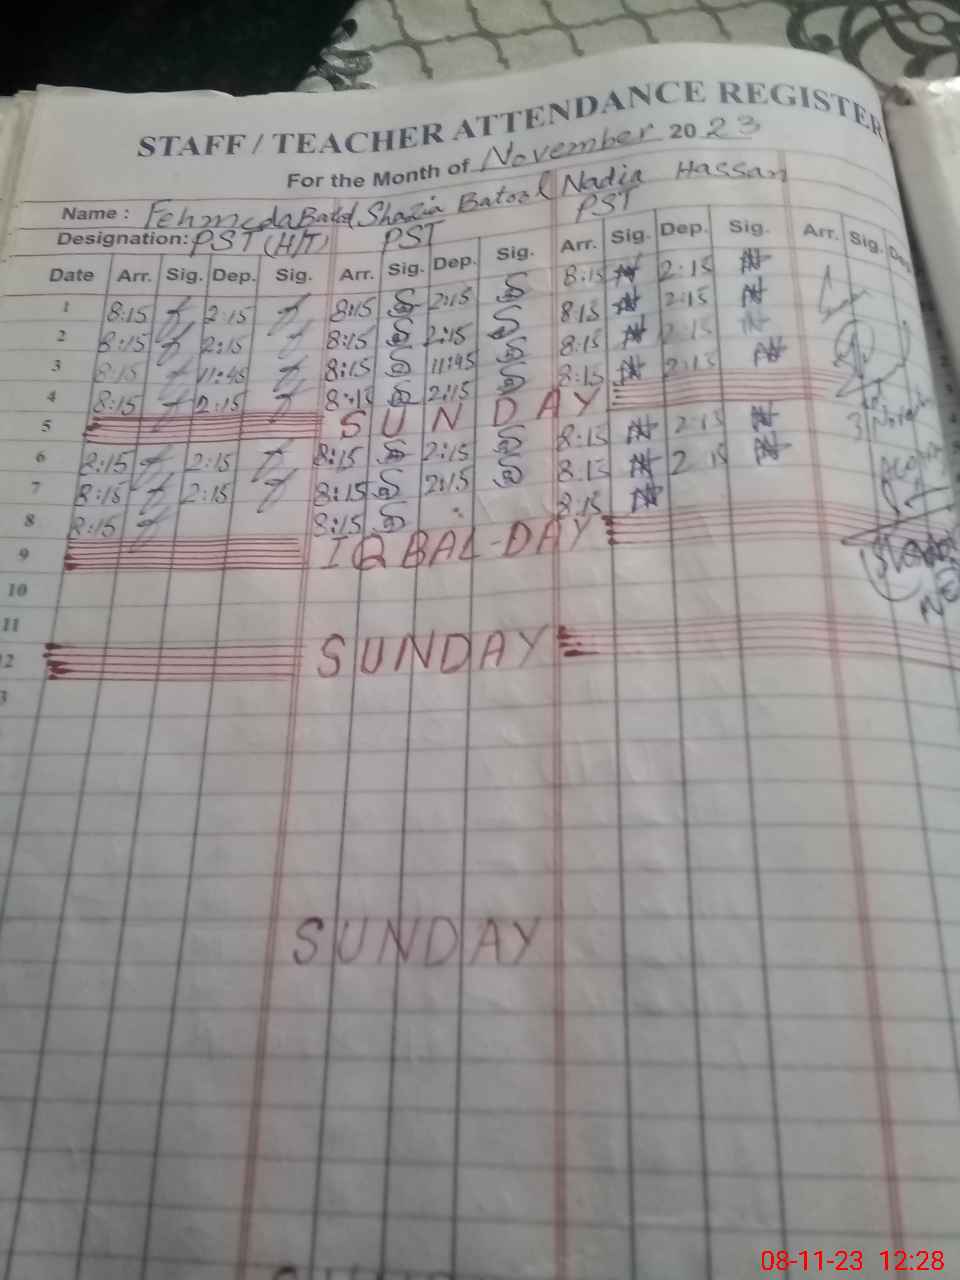 STAFF / TEACHER ATTENDANCE REGISTER
For the Month of November 2023
Name : Fehmeda Batool Shazia Batool Nadia Hassan
Designation: PST (H/T) PST PST
Date Arr. Sig. Dep. Sig. Arr. Sig. Dep. Sig. Arr. Sig. Dep. Sig. Arr. Sig. Dep
1 8:15 2:15 8:15 2:15 8:15 2:15
2 8:15 2:15 8:15 2:15 8:15 2:15
3 8:15 11:45 8:15 11:45 8:15 2:15
4 8:15 2:15 8:15 2:15 8:15 2:15
5 SUNDAY
6 8:15 2:15 8:15 2:15 8:15 2:15
7 8:15 2:15 8:15 2:15 8:15 2:15
8 8:15 8:15 8:15
9 IQBAL-DAY
10
11
12 SUNDAY
3
SUNDAY
08-11-23 12:28